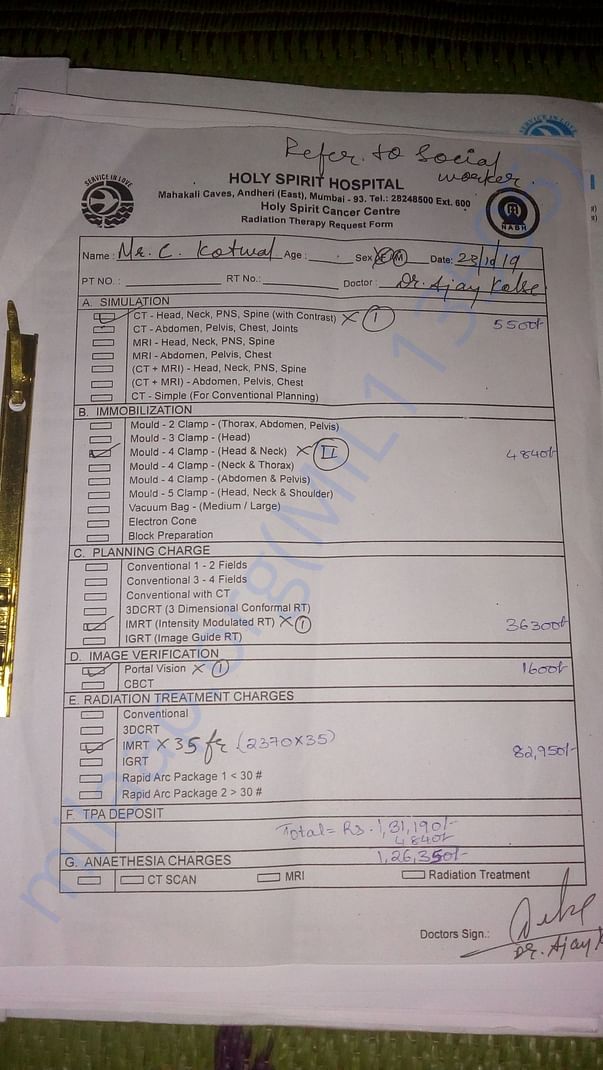 Refer. to Social
worker.
SERVICE IN LOVE
HOLY SPIRIT HOSPITAL
Mahakali Caves, Andheri (East), Mumbai - 93. Tel.: 28248500 Ext. 600
Holy Spirit Cancer Centre
Radiation Therapy Request Form
NABH
Name : Mr. C. Kotwal Age : Sex F/M Date: 23/10/19
PT NO. : RT No.: Doctor : Dr. Ajay Kolse
A. SIMULATION
CT - Head, Neck, PNS, Spine (with Contrast) X I 5500/-
CT - Abdomen, Pelvis, Chest, Joints
MRI - Head, Neck, PNS, Spine
MRI - Abdomen, Pelvis, Chest
(CT + MRI) - Head, Neck, PNS, Spine
(CT + MRI) - Abdomen, Pelvis, Chest
CT - Simple (For Conventional Planning)
B. IMMOBILIZATION
Mould - 2 Clamp - (Thorax, Abdomen, Pelvis)
Mould - 3 Clamp - (Head)
Mould - 4 Clamp - (Head & Neck) X II 4840/-
Mould - 4 Clamp - (Neck & Thorax)
Mould - 4 Clamp - (Abdomen & Pelvis)
Mould - 5 Clamp - (Head, Neck & Shoulder)
Vacuum Bag - (Medium / Large)
Electron Cone
Block Preparation
C. PLANNING CHARGE
Conventional 1 - 2 Fields
Conventional 3 - 4 Fields
Conventional with CT
3DCRT (3 Dimensional Conformal RT)
IMRT (Intensity Modulated RT) X 1 36300/-
IGRT (Image Guide RT)
D. IMAGE VERIFICATION
Portal Vision X 1 1600/-
CBCT
E. RADIATION TREATMENT CHARGES
Conventional
3DCRT
IMRT X 35 fr (2370X35) 82,950/-
IGRT
Rapid Arc Package 1 < 30 #
Rapid Arc Package 2 > 30 #
F. TPA DEPOSIT
Total = Rs. 1,31,190/-
4840/-
G. ANAETHESIA CHARGES 1,26,350/-
CT SCAN MRI Radiation Treatment
Doctors Sign.:
Dr. Ajay K